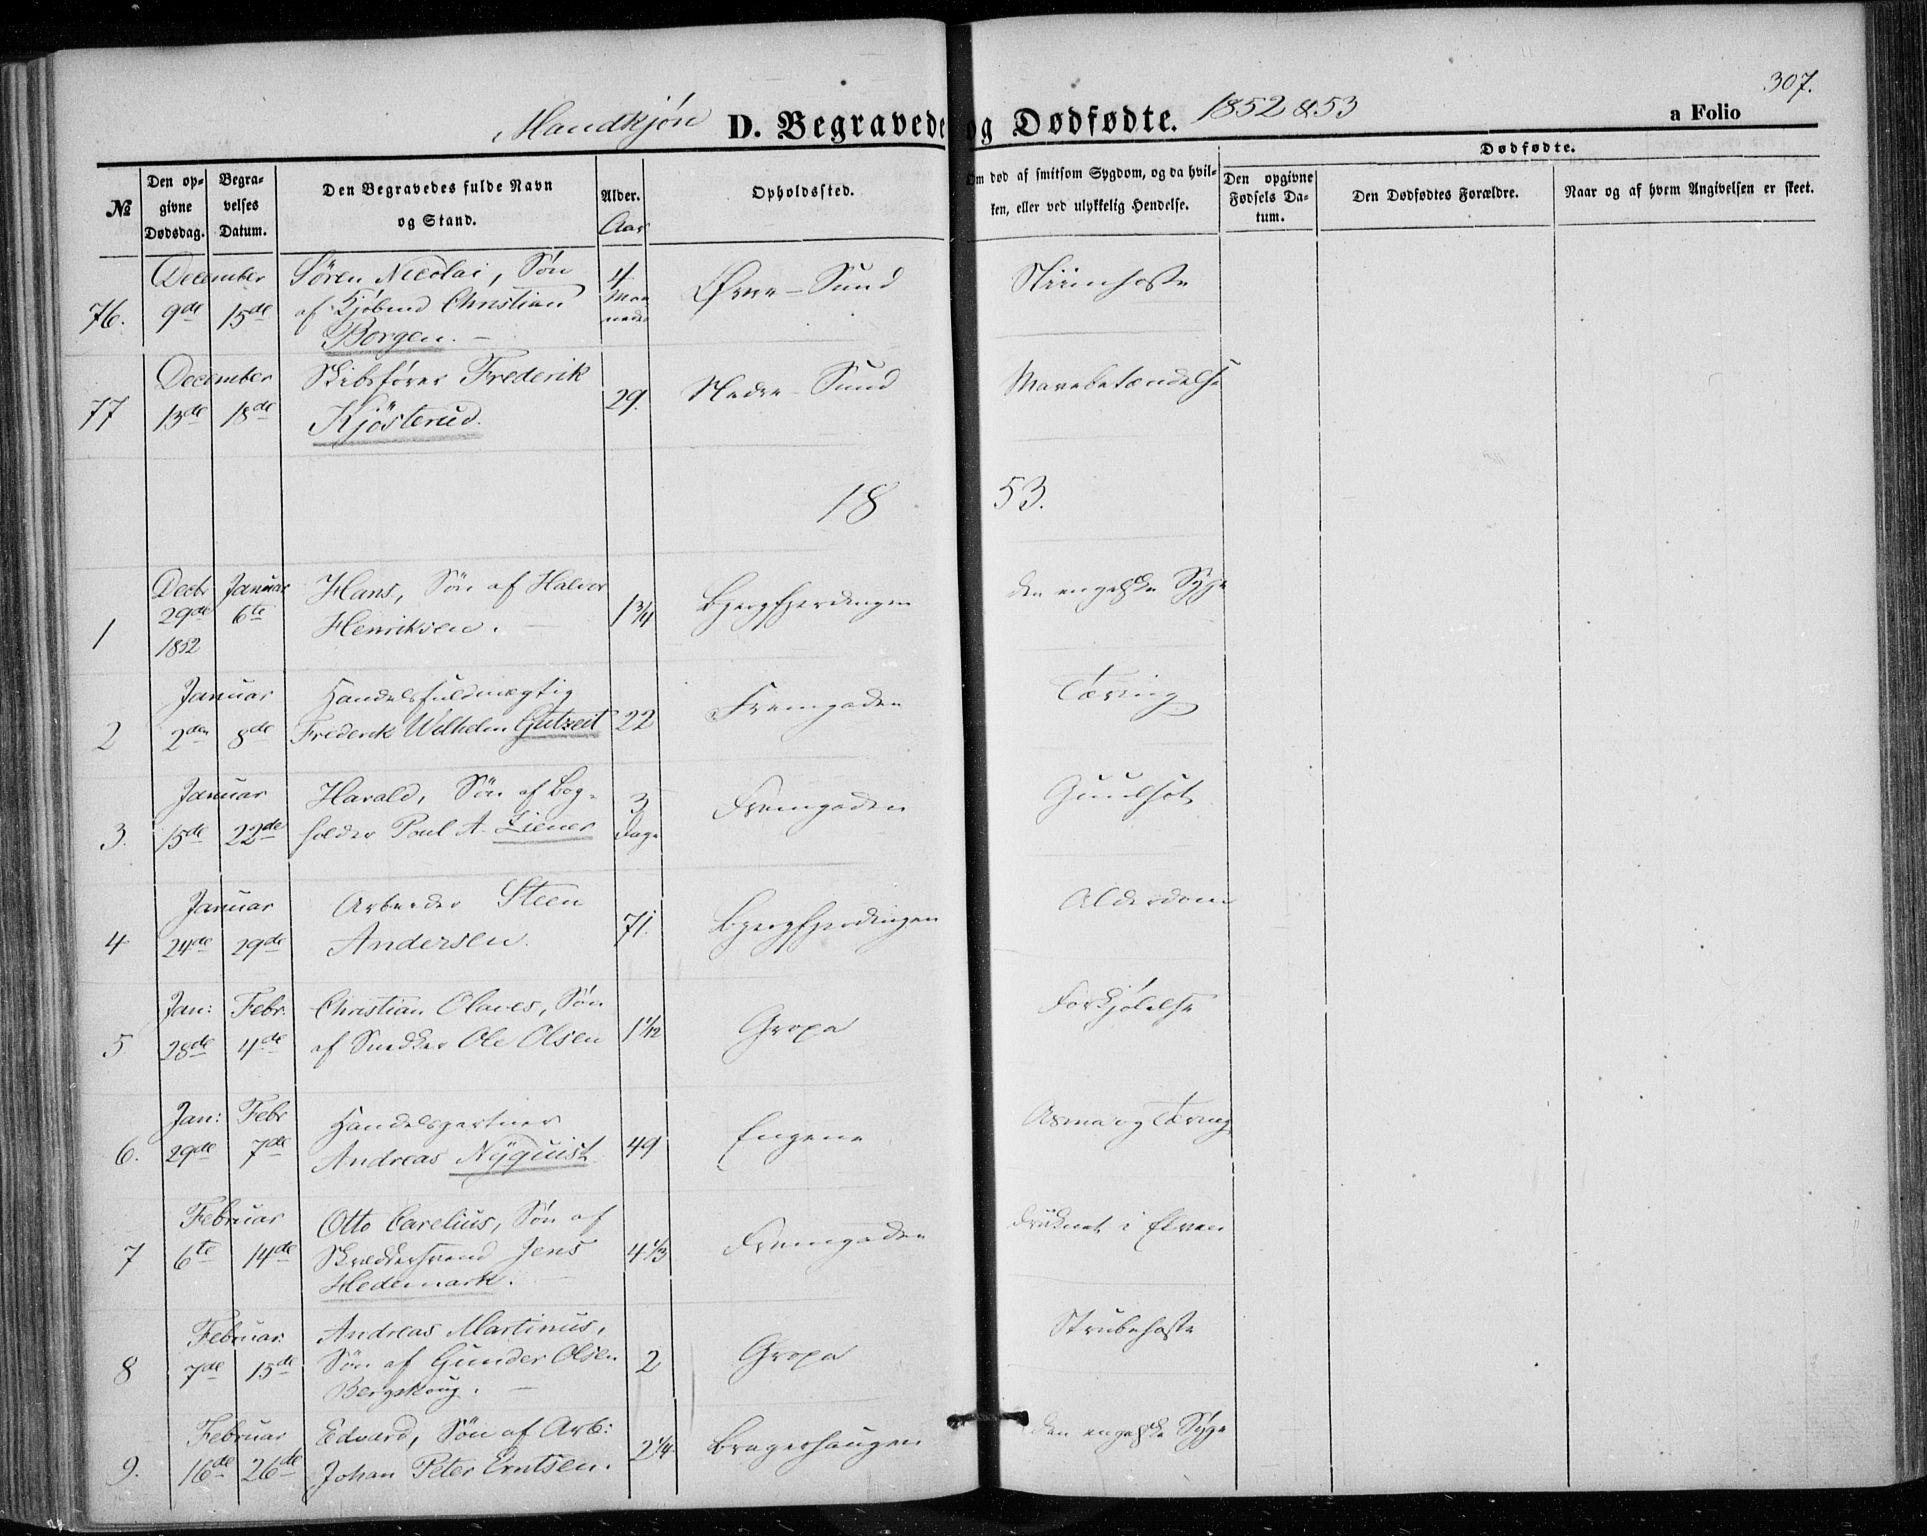 307.
Mandkjøn D. Begravede og Dødfødte. 1852 & 53 a Folio
№
Den opgivne Dødsdag.
Begravelses Datum.
Den Begravedes fulde Navn og Stand.
Alder. Aar
Opholdssted.
Om død af smitsom Sygdom, og da hvilken, eller ved ulykkelig Hendelse.
Dødfødte.
Den opgivne Fødsels Datum.
Den Dødfødtes Forældre.
Naar og af hvem Angivelsen er skeet.
December Søren Nicolai, Søn 4 Øvre-Sund
76. 9de 15de af Kjøbmd Christian Maaneder
Borgen. —
December Skibsfører Frederik Nedre-Sund Mavebetændelse
77 13de 18de Kjösterud. 29.
18 53.
Decbr Januar Hans, Søn af Halvor Bjergfjerdingen den engelske Syge
1 29de 6te Henriksen. — 1 3/4
1852
Januar Handelsfuldmægtig Fremgaden Tæring
2 2den 8de Frederik Wilhelm Gutzeit 22
Januar Harald, Søn af Bog- 3 Fremgaden Guulsot
3. 15de 22de holder Poul A. Liener Dage
Januar Arbeider Steen Bjergfjerdingen Alderdom
4 24de 29de Andersen. 71.
Jan: Febr. Christian Olaves, Søn Gropa Forkjølelse
5 28de 4de af Snedker Ole Olsen 1 1/12
Jan: Febr Handelsgartner Engene Asma og Tæring
6. 29de 7de Andreas Nÿquist 49
Februar Otto Carelius, Søn af Fremgaden Druknet i Elven
7 6te 14de Skrædersvend Jens 4 1/3
Hedemark. —
Februar Andreas Martinus, Gropa Strubehoste
8 7de 15de Søn af Gunder Olsen 2
Bergskoug. —
Februar Edvard, Søn af Arb: 2 1/4 Bragerhaugen den engelske Syge
9. 16de 26de Johan Peter Erntsen.